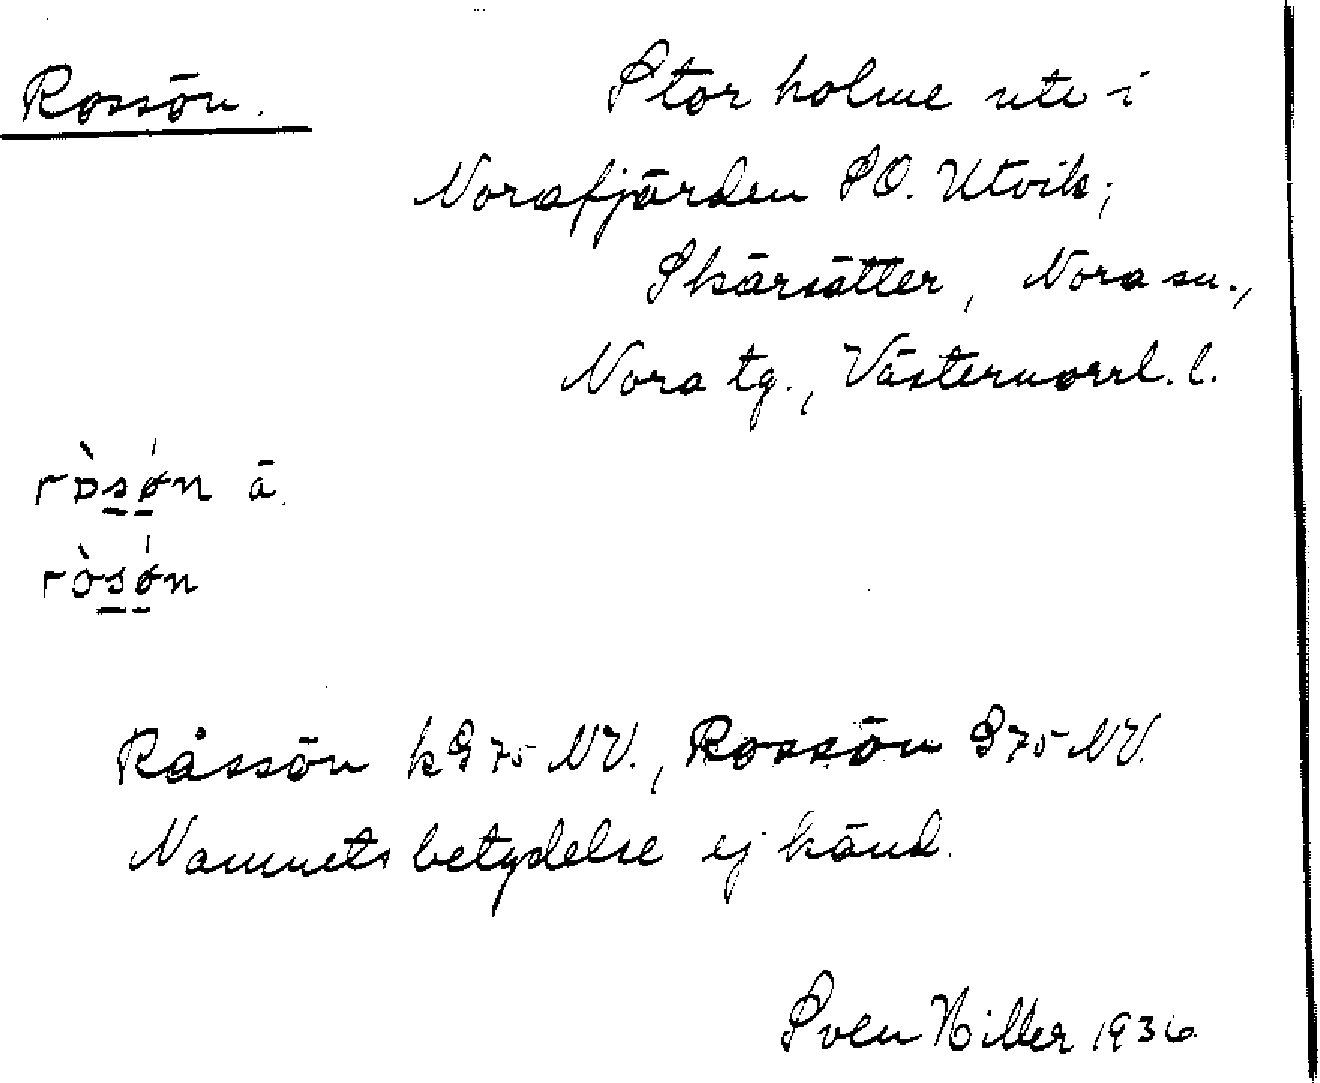 Rossön. Stor holme ute i
Norafjärden SO. Utvik,
Skärsätter, Nora sn.,
Nora tg., Västernorrl. l.
ròsøn ä.
ròsøn
Råssön kG 75 NV., Rossön G 75 NV.
Namnets betydelse ej känd.
Sven Hiller 1936